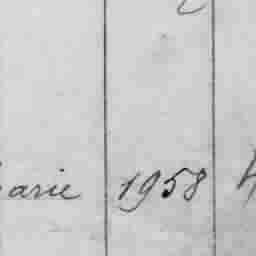 arie 1958